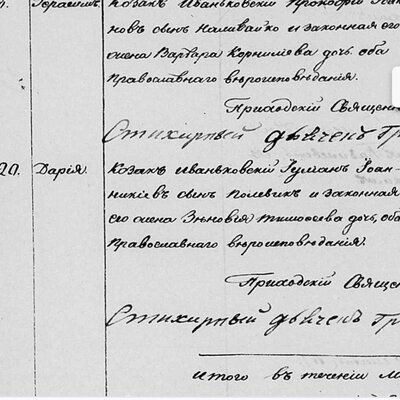 Герасимъ. Козакъ Иваньковскій Прокофій Іоан-
новъ сынъ Наливайко и законная его
жена Варвара Корнилiева дочь, оба
православнаго вѣроисповѣданія.
Приходскій Священ
Стихирный дьяченъ Гр
20. Дарія. Козакъ Иваньковскій Гуманъ Іоан-
никіевъ сынъ Полевикъ и законная
его жена Зѣновія Тимофеева дочь, оба
православнаго вѣроисповѣданія.
Приходскій Священ
Стихирный дьяченъ Гр
Итого въ теченіи М